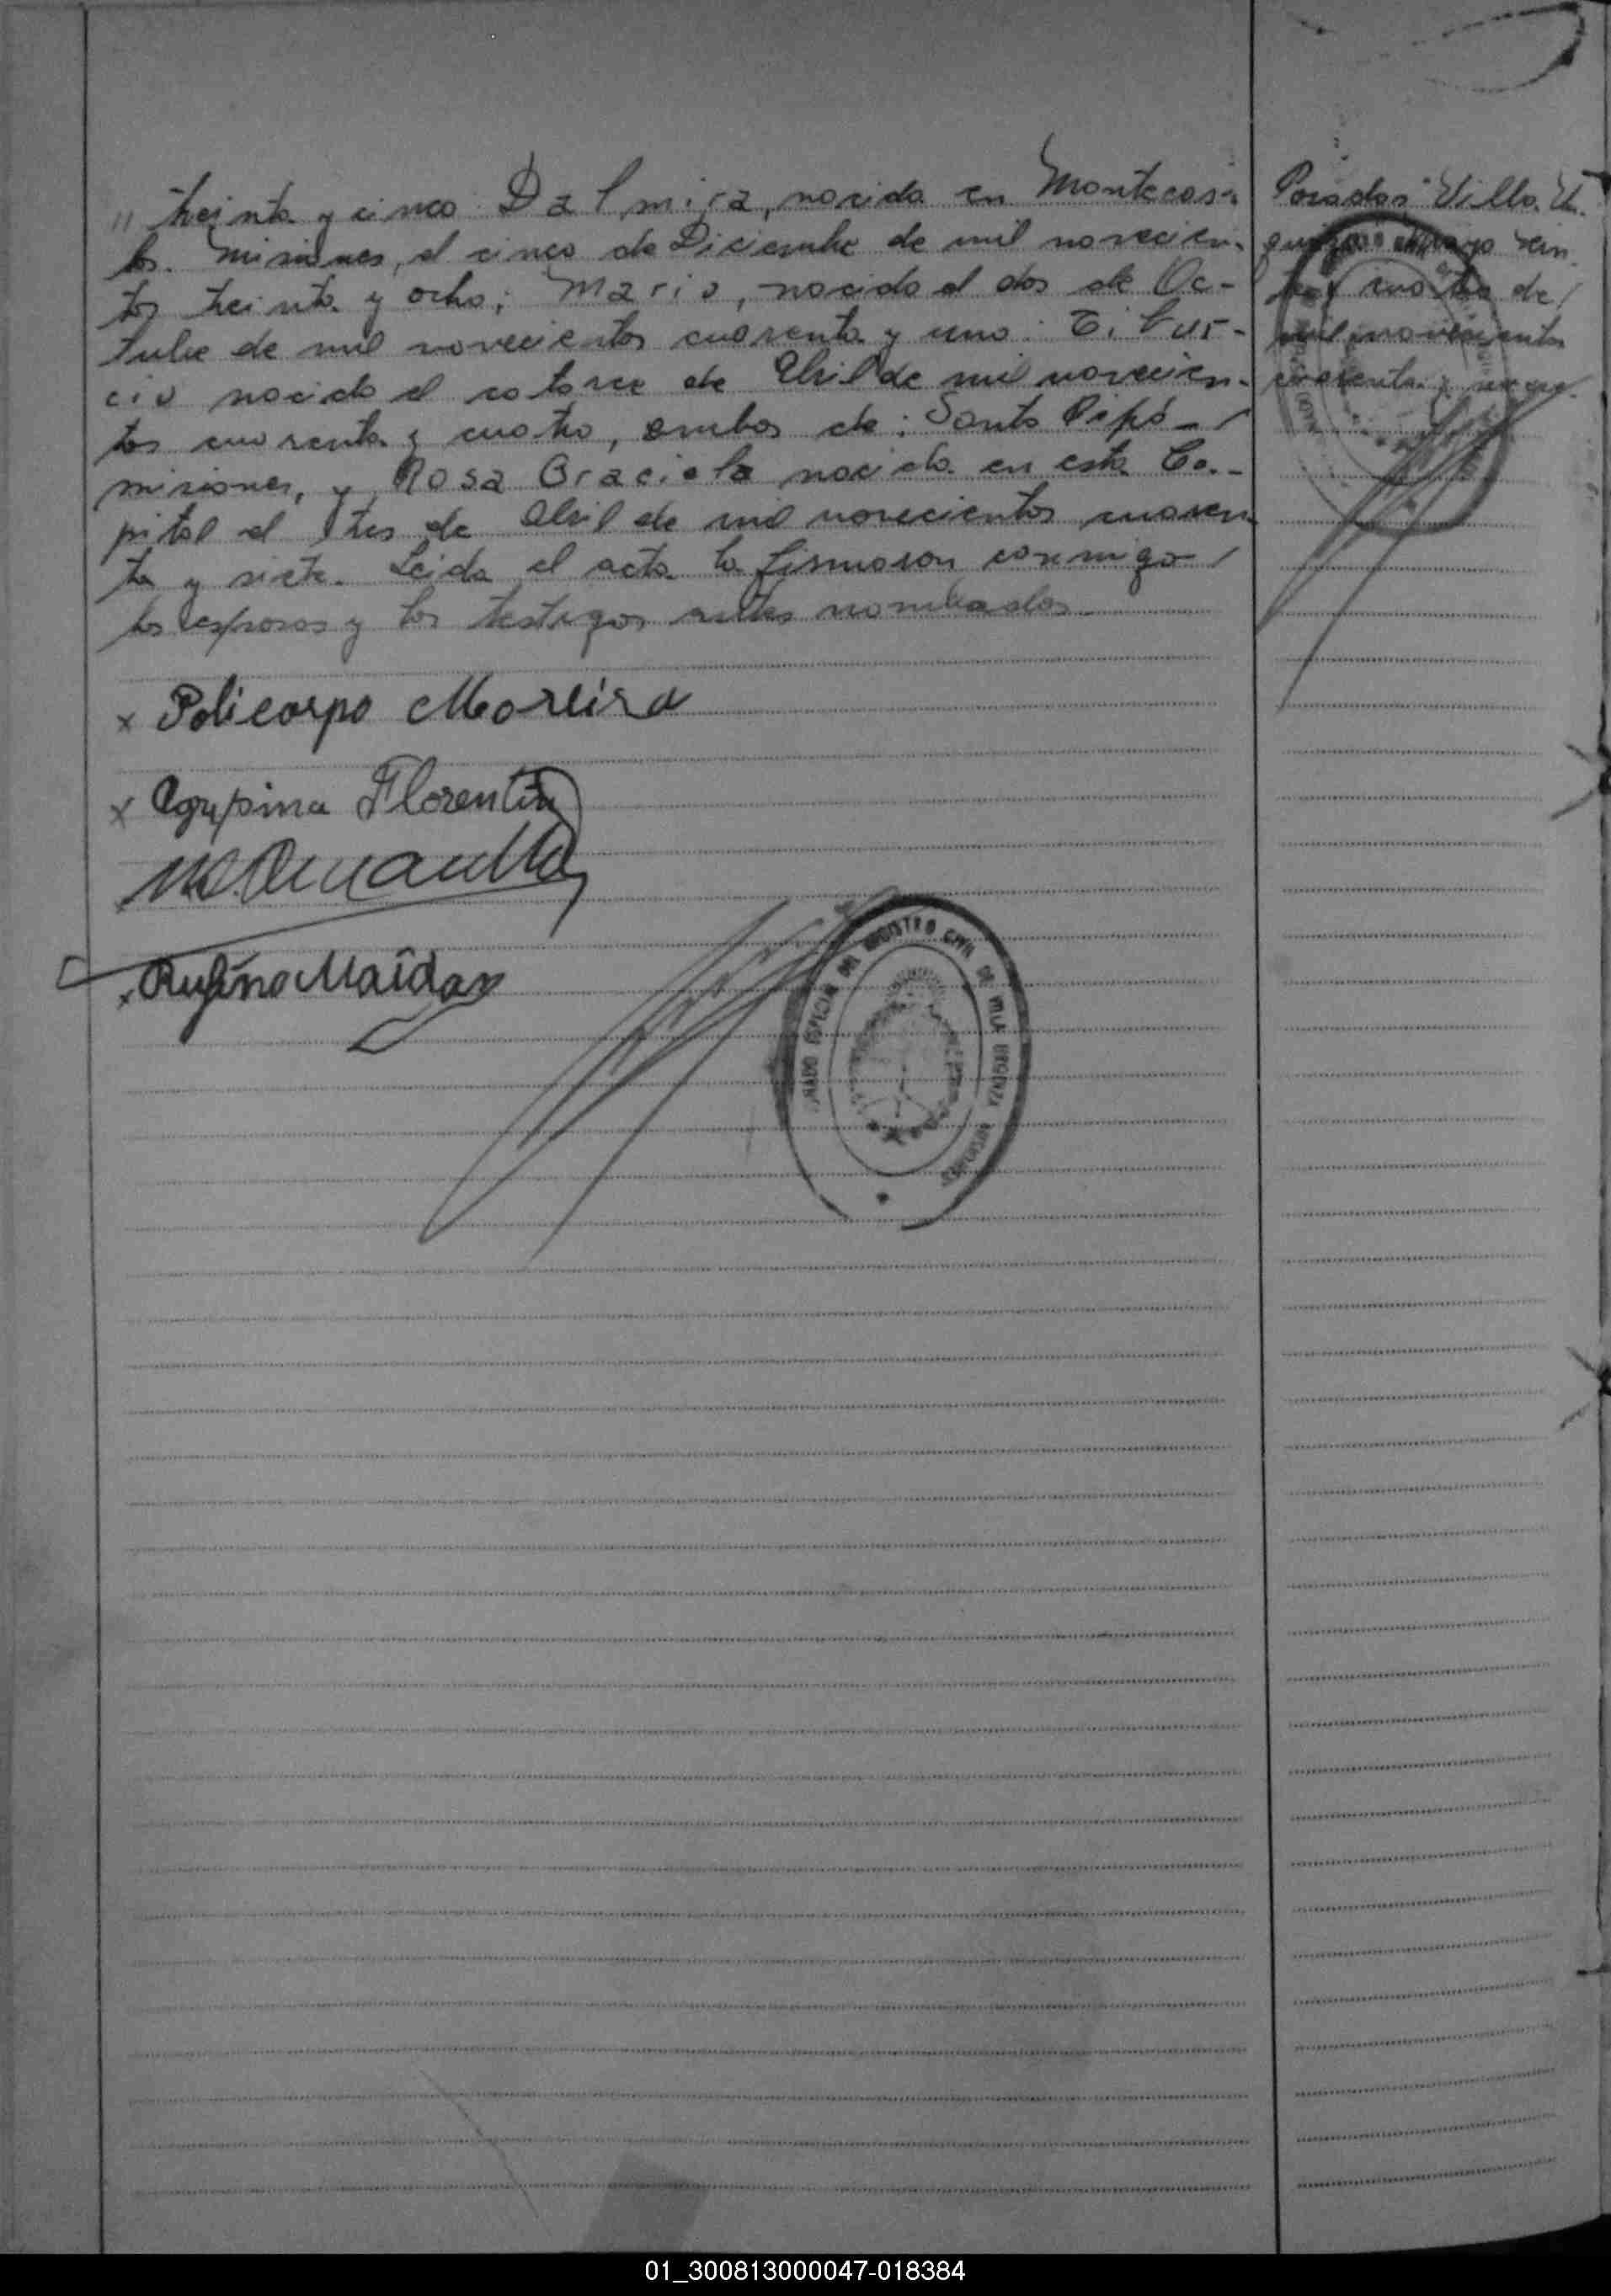 " treinta y cinco. Dalmira, nacida en Montecar-
lo. Misiones, el cinco de Diciembre de mil novecien-
tos treinta y ocho; Mario, nacido el dos de Oc-
tubre de mil novecientos cuarenta y uno: Tibur-
cio nacido el catorce de Abril de mil novecien-
tos cuarenta y cuatro, ambos de: Santo Pipó-/
misiones, y Rosa Graciela nacida en esta Ca-
pital el tres de Abril de mil novecientos cuaren-
ta y siete. Leida el acta la firmaron conmigo /
los esposos y los testigos antes nombrados.
x Policarpo Moreira
x Agripina Florentin
x
x Rufino Maidan
REGISTRO CIVIL DE VILLA URQUIZA
Posadas "Villa Ur-
quiza mayo vein
te y cuatro de /
mil novecientos
cuarenta y nueve.
01_300813000047-018384